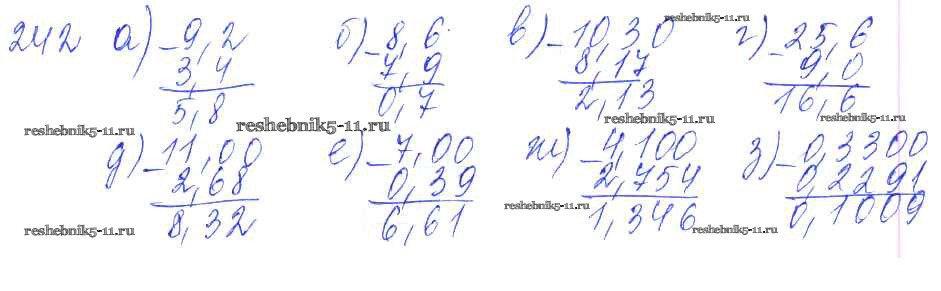 242 а) -9,2 б) -8,6 в) -10,30 г) -25,6
3,4 7,9 8,17 9,0
5,8 0,7 2,13 16,6
reshebnik5-11.ru
reshebnik5-11.ru reshebnik5-11.ru reshebnik5-11.ru reshebnik5-11.ru
д) -11,00 е) -7,00 ж) -4,100 з) -0,3300
2,68 0,39 2,754 0,2291
8,32 6,61 1,346 0,1009
reshebnik5-11.ru reshebnik5-11.ru reshebnik5-11.ru reshebnik5-11.ru